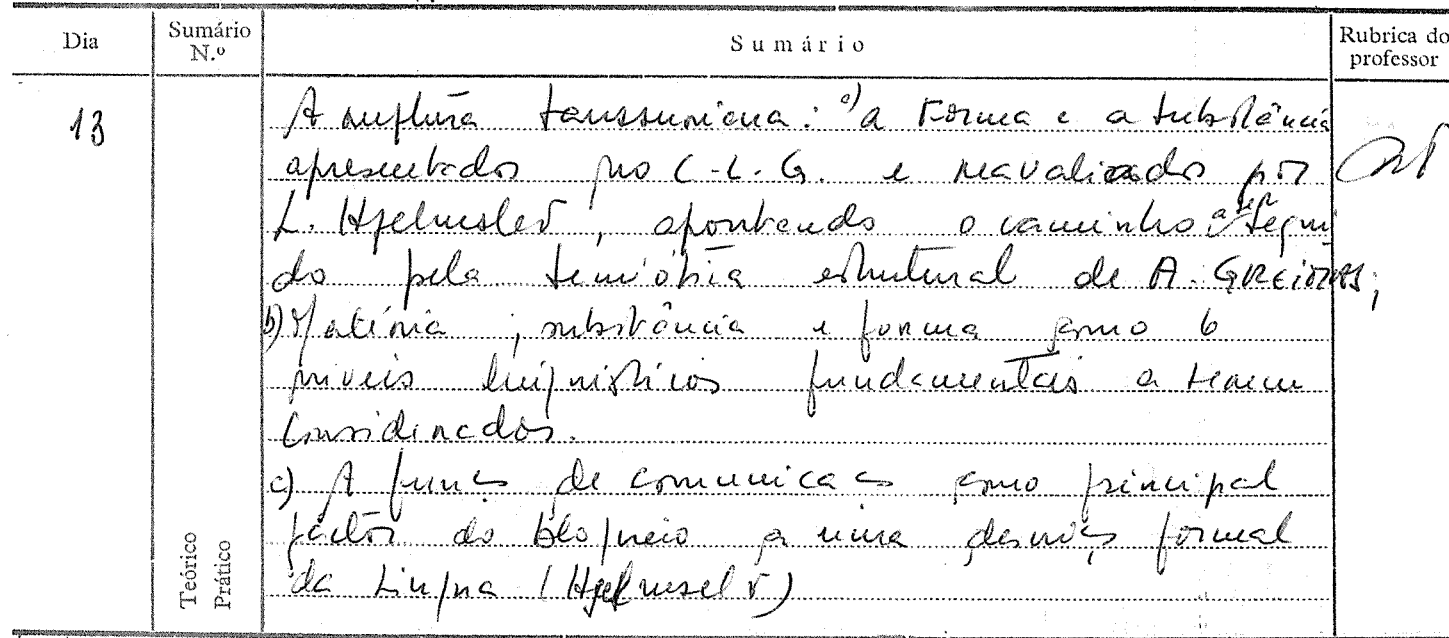 Dia
Sumário N.º
Sumário
Rubrica do professor
13
A ruptura saussuriana: a) a Forma e a substância
apresentados no C.L.G. e reavaliados por
L. Hjelmslev, apontando o caminho a ser segui
do pela semiótica estrutural de A. GREIMAS;
b) Matéria, substância e forma como
níveis linguísticos fundamentais a serem
considerados.
c) A função de comunicação como principal
factor do bloqueio a uma descrição formal
da Língua (Hjelmselv)
Teórico
Prático